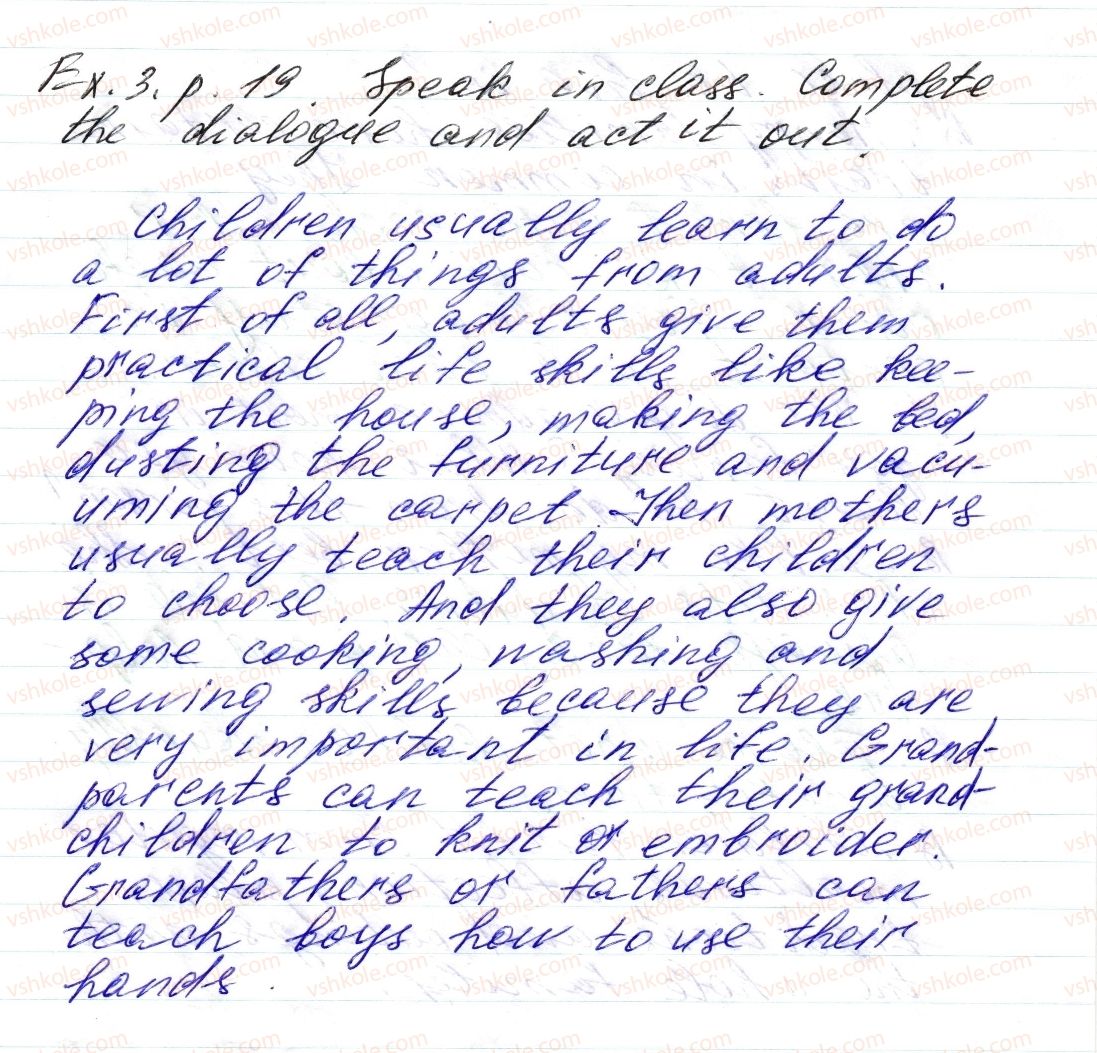 Ex. 3. p. 19. Speak in class. Complete
the dialogue and act it out.
Children usually learn to do
a lot of things from adults.
First of all, adults give them
practical life skills like kee-
ping the house, making the bed,
dusting the furniture and vacu-
uming the carpet. Then mothers
usually teach their children
to choose. And they also give
some cooking, washing and
sewing skills, because they are
very important in life. Grand-
parents can teach their grand-
children to knit or embroider.
Grandfathers or fathers can
teach boys how to use their
hands.